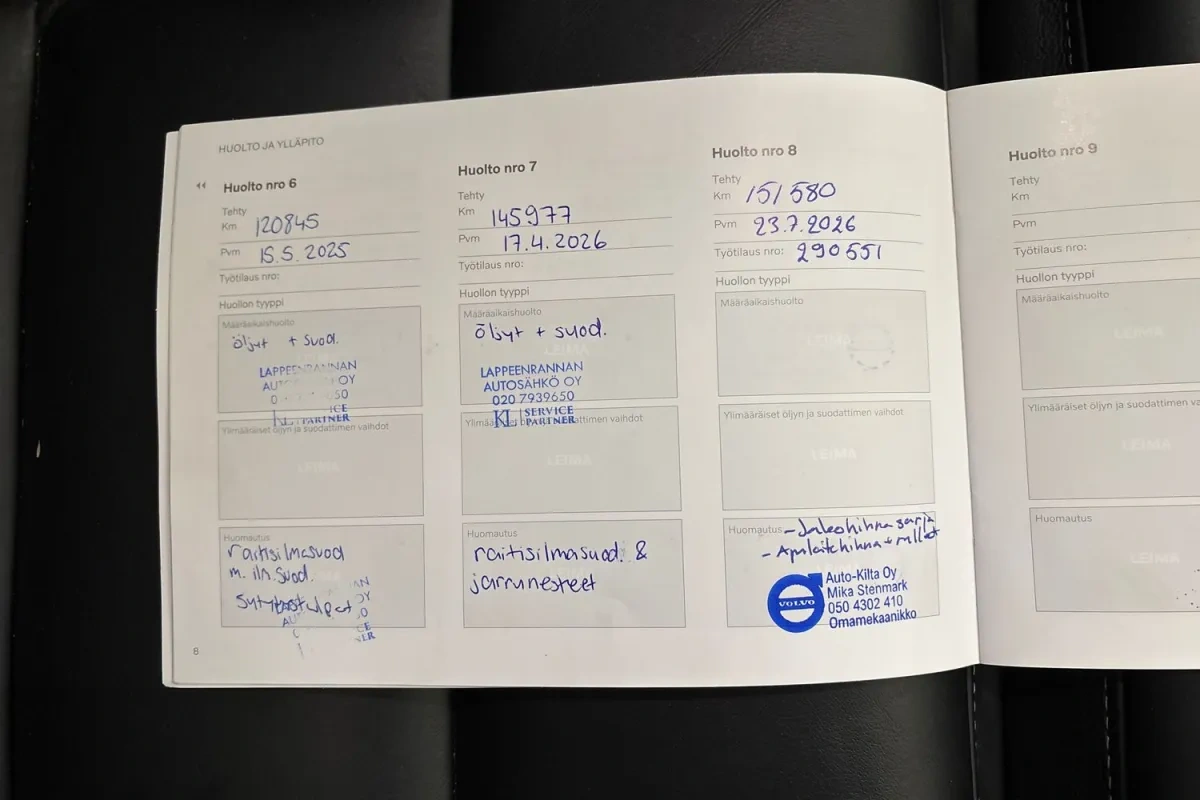 HUOLTO JA YLLÄPITO
Huolto nro 6
Tehty
Km 120845
Pvm 15.5. 2025
Työtilaus nro:
Huollon tyyppi
Määräaikaishuolto
öljyt + suod.
LAPPEENRANNAN
OY
KL PARTNER
Ylimääräiset öljyn ja suodattimen vaihdot
LEIMA
Huomautus
raitisilmasuod
m. iln. suod.
8
Huolto nro 7
Tehty
Km 145977
Pvm 17.4. 2026
Työtilaus nro:
Huollon tyyppi
Määräaikaishuolto
öljyt + suod.
LEIMA
LAPPEENRANNAN
AUTOSÄHKÖ OY
020 7939650
KL SERVICE
PARTNER
LEIMA
Huomautus
raitisilmasuod. &
jarrunesteet
Huolto nro 8
Tehty
Km 151 580
Pvm 23.7.2026
Työtilaus nro: 290551
Huollon tyyppi
Määräaikaishuolto
LEIMA
Ylimääräiset öljyn ja suodattimen vaihdot
LEIMA
Huomautus - Jakohihna sarja
- Apulaitehihna + rullat
VOLVO
Auto-Kilta Oy
Mika Stenmark
050 4302 410
Omamekaanikko
Huolto nro 9
Tehty
Km
Pvm
Työtilaus nro:
Huollon tyyppi
Määräaikaishuolto
LEIMA
Ylimääräiset öljyn ja suodattimen va
LEIMA
Huomautus
LEIMA